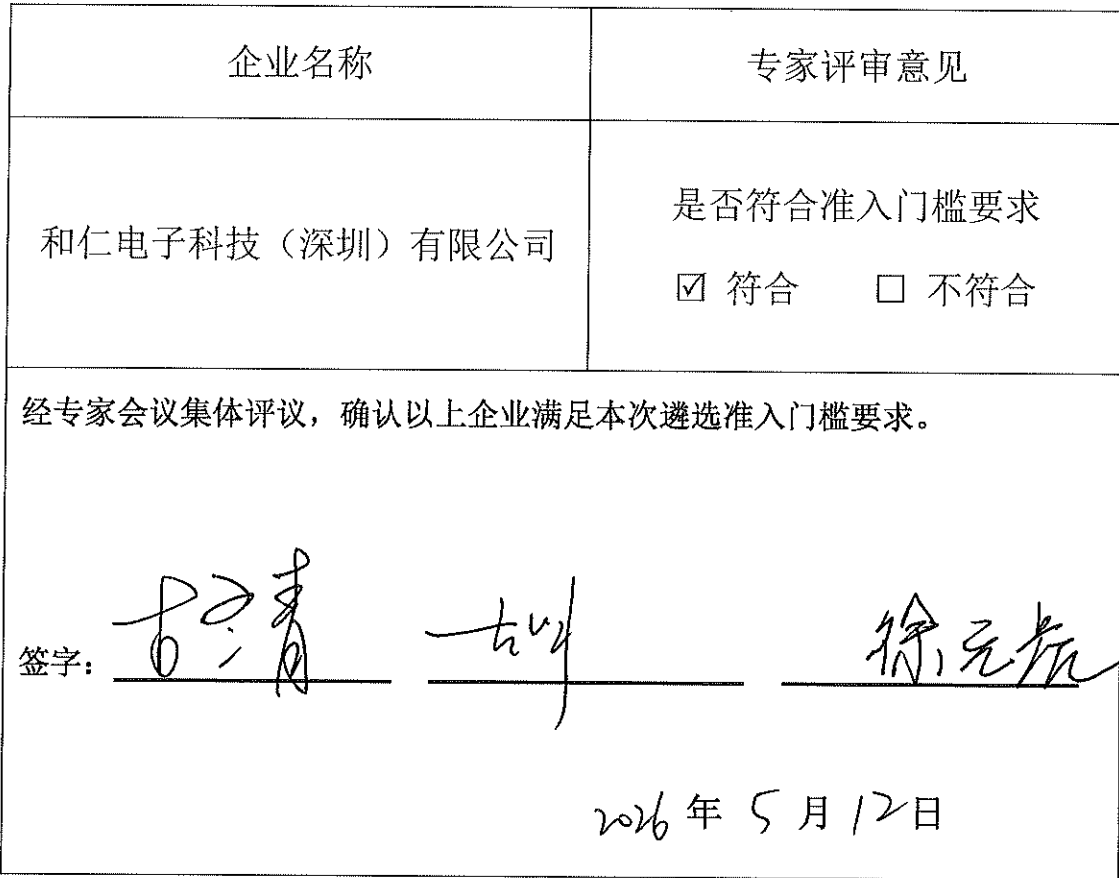 企业名称
专家评审意见
和仁电子科技（深圳）有限公司
是否符合准入门槛要求
☑ 符合 □ 不符合
经专家会议集体评议，确认以上企业满足本次遴选准入门槛要求。
签字：
2026年5月12日